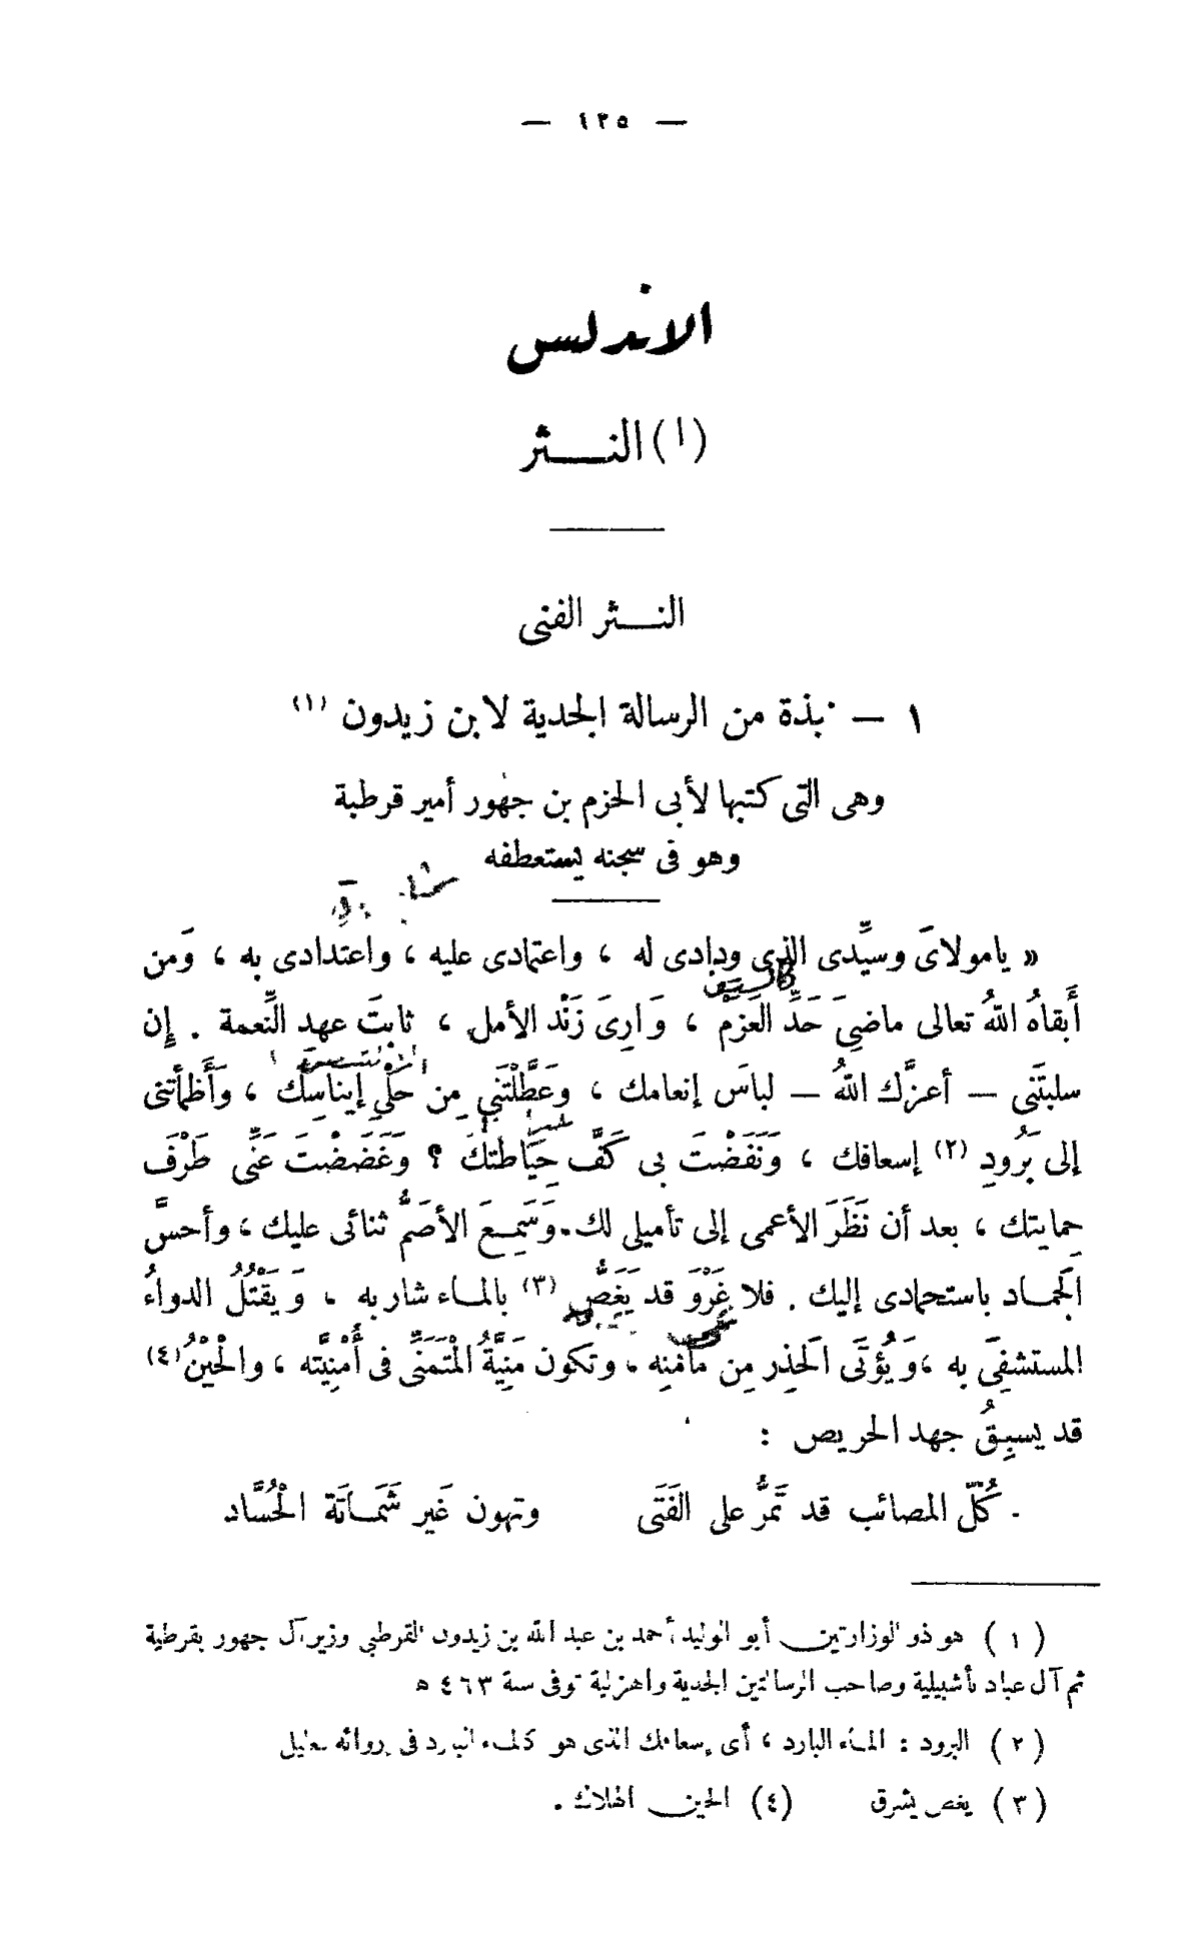 — ٤٢٥ —
الاندلس
(ا) النـــثر
النـــثر الفنى
١ — نبذة من الرسالة الجدية لابن زيدون (١)
وهى التى كتبها لأبى الحزم بن جهور أمير قرطبة
وهو فى سجنه يستعطفه
« يامولاىَ وسيِّدى الذى ودادى له ، واعتمادى عليه ، واعتدادى به ، وَمن
أَبقاهُ اللهُ تعالى ماضيَ حَدِّ العَزمْ ، وَارِىَ زَنْد الأمل ، ثابتَ عهد النِّعمة . إِن
سلبتَنى — أعزَّك اللهُ — لباسَ إنعامك ، وعَطَّلْتَنىِ مِن حَلْىِ إيناسِك ، وَأَظمأتنى
إلى بَرُودِ (٢) إسعافك ، وَنَفَضْتَ بى كَفَّ حِيَاطتكَ ؟ وَغَضَضْتَ عَنِّى طَرْفَ
حِمايتك ، بعد أن نَظَرَ الأعمى إلى تأميلى لك. وَسَمِـعَ الأصَمُّ ثنائى عليك ، وأحسَّ
الَجمـاد باستحمادى إليك . فلا غَرْوَ قد يَغَصُّ (٣) بالمـاء شاربه ، وَيَقْتُلُ الدواءُ
المستشفِىَ به ، وَيُؤتَى الَحذِر مِن مَأمَنِه ، وتكون مَنِيَّةُ الْمتَمَنِّى فى أُمْنِيَّته ، والْحَيْنُ (٤)
قد يسبِقُ جهد الحريص :
كُلّ المصائب قد تَمرُّ على الفَتَى وتهون غَير شَمَـاتَة الْحُسَّاد
(١) هو ذو الوزارتين أبو الوليد أحمد بن عبد الله بن زيدون القرطبى وزير آل جهور بقرطبة
ثم آل عباد بأشبيلية وصاحب الرسالتين الجدية والهزلية توفى سنة ٤٦٣ ه
(٢) البرود : المـاء البارد ، أى إسعافك الذى هو كالمـاء البارد فى إروائه الغليل
(٣) يغص يشرق (٤) الحين الهلاك .